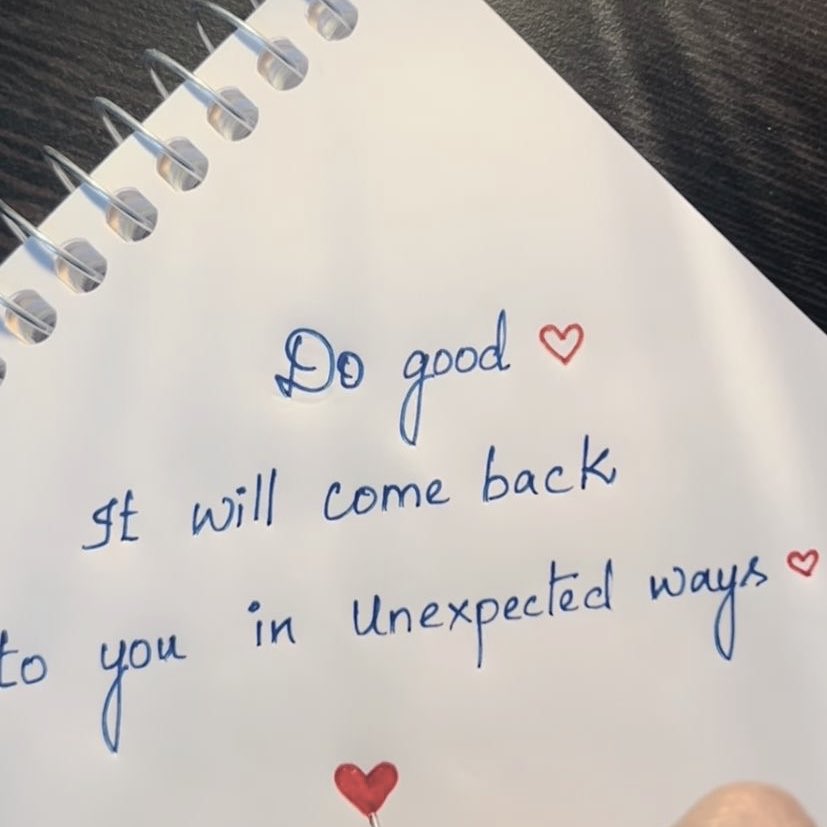 Do good ♡
It will come back
to you in Unexpected ways ♡